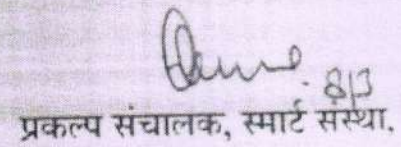 8/3
प्रकल्प संचालक, स्मार्ट संस्था,